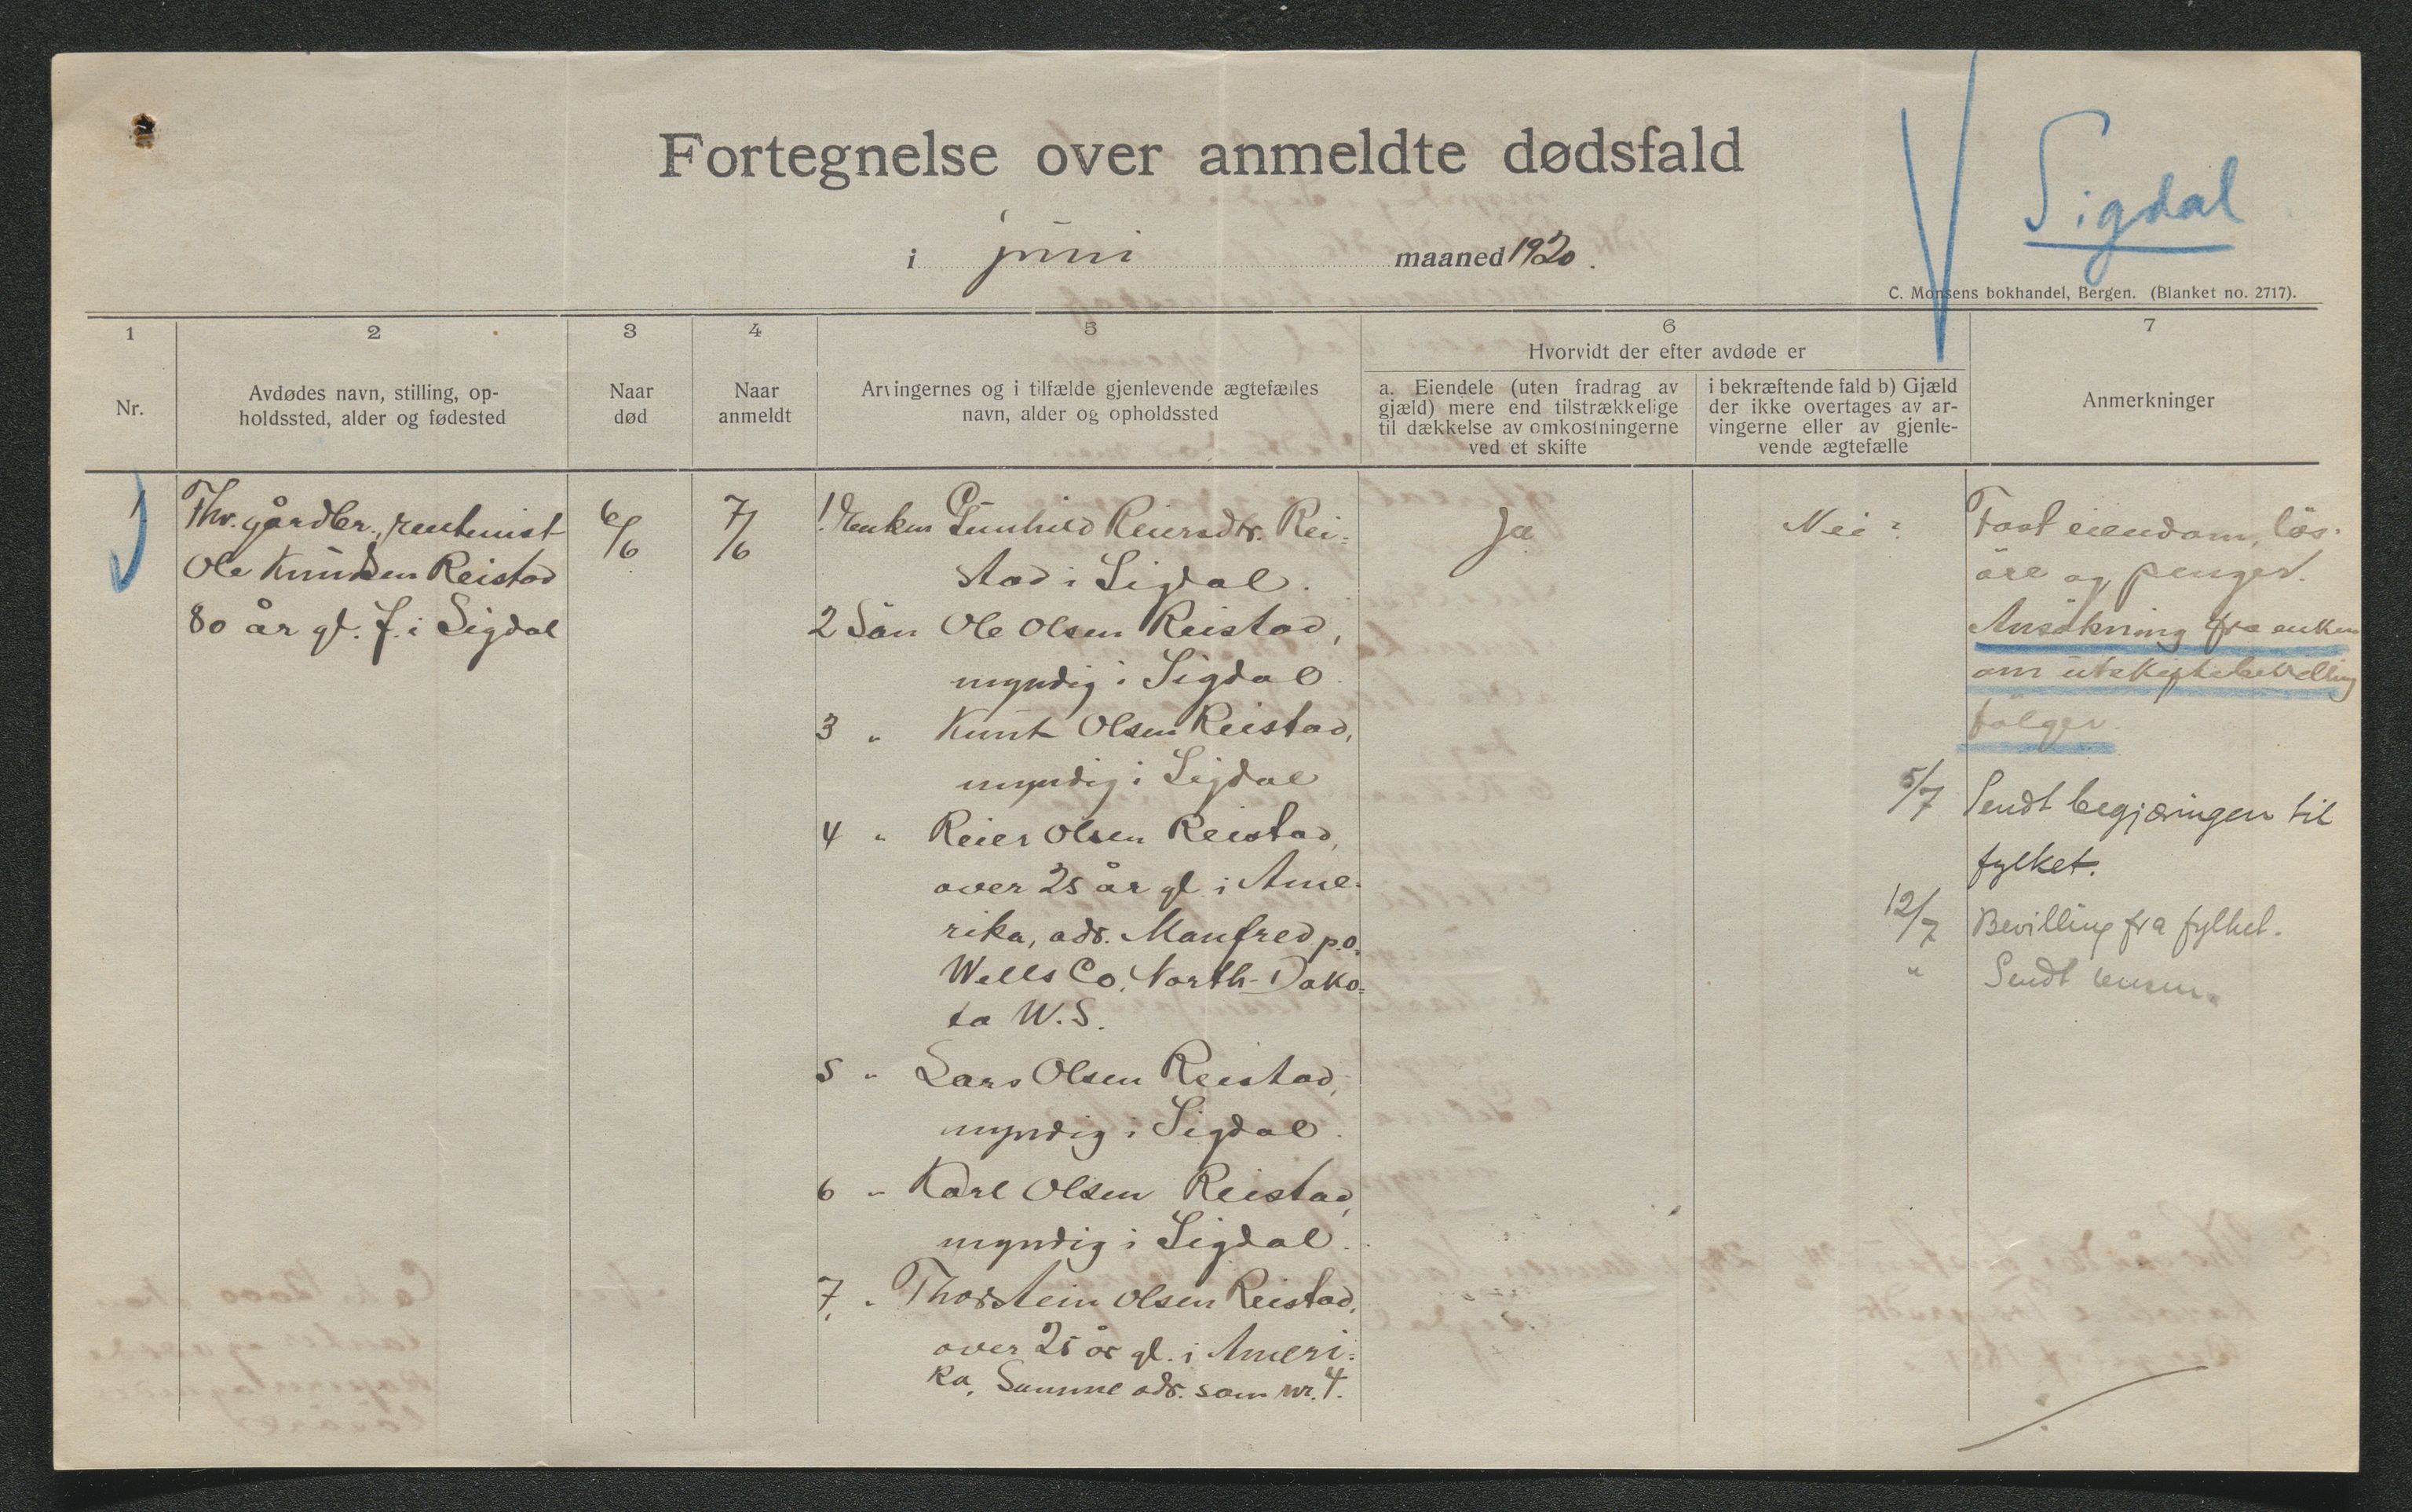 Fortegnelse over anmeldte dødsfald
i juni maaned 1920.
Sigdal
C. Monsens bokhandel, Bergen. (Blanket no. 2717).
1
Nr.
2
Avdødes navn, stilling, op-
holdssted, alder og fødested
3
Naar
død
4
Naar
anmeldt
5
Arvingernes og i tilfælde gjenlevende ægtefælles
navn, alder og opholdssted
6
Hvorvidt der efter avdøde er
a. Eiendele (uten fradrag av
gjæld) mere end tilstrækkelige
til dækkelse av omkostningerne
ved et skifte
i bekræftende fald b) Gjæld
der ikke overtages av ar-
vingerne eller av gjenle-
vende ægtefælle
7
Anmerkninger
1
Fhv. gårdbr., rentenist
Ole Knudsen Reistad
80 år gl. f. i Sigdal
6/6
7/6
1. Enken Gunhild Reiersdtr. Rei-
stad i Sigdal.
2 Sön Ole Olsen Reistad,
myndig i Sigdal.
3 " Knut Olsen Reistad,
myndig i Sigdal
4 " Reier Olsen Reistad,
over 25 år gl. i Ame-
rika, adr. Manfred p.o.
Wells Co. North-Dako-
ta W.S.
5 " Lars Olsen Reistad,
myndig i Sigdal.
6 " Karl Olsen Reistad,
myndig i Sigdal.
7. " Thorstein Olsen Reistad,
over 25 år gl. i Ameri-
ka, Samme adr. som nr. 4.
Ja
Nei ?
Fast eiendom, lös-
öre og penger.
Ansökning fra enken
om utskiftebevilling
fölger.
5/7 Sendt begjæringen til
fylket.
12/7 Bevilling fra fylket.
" Sendt